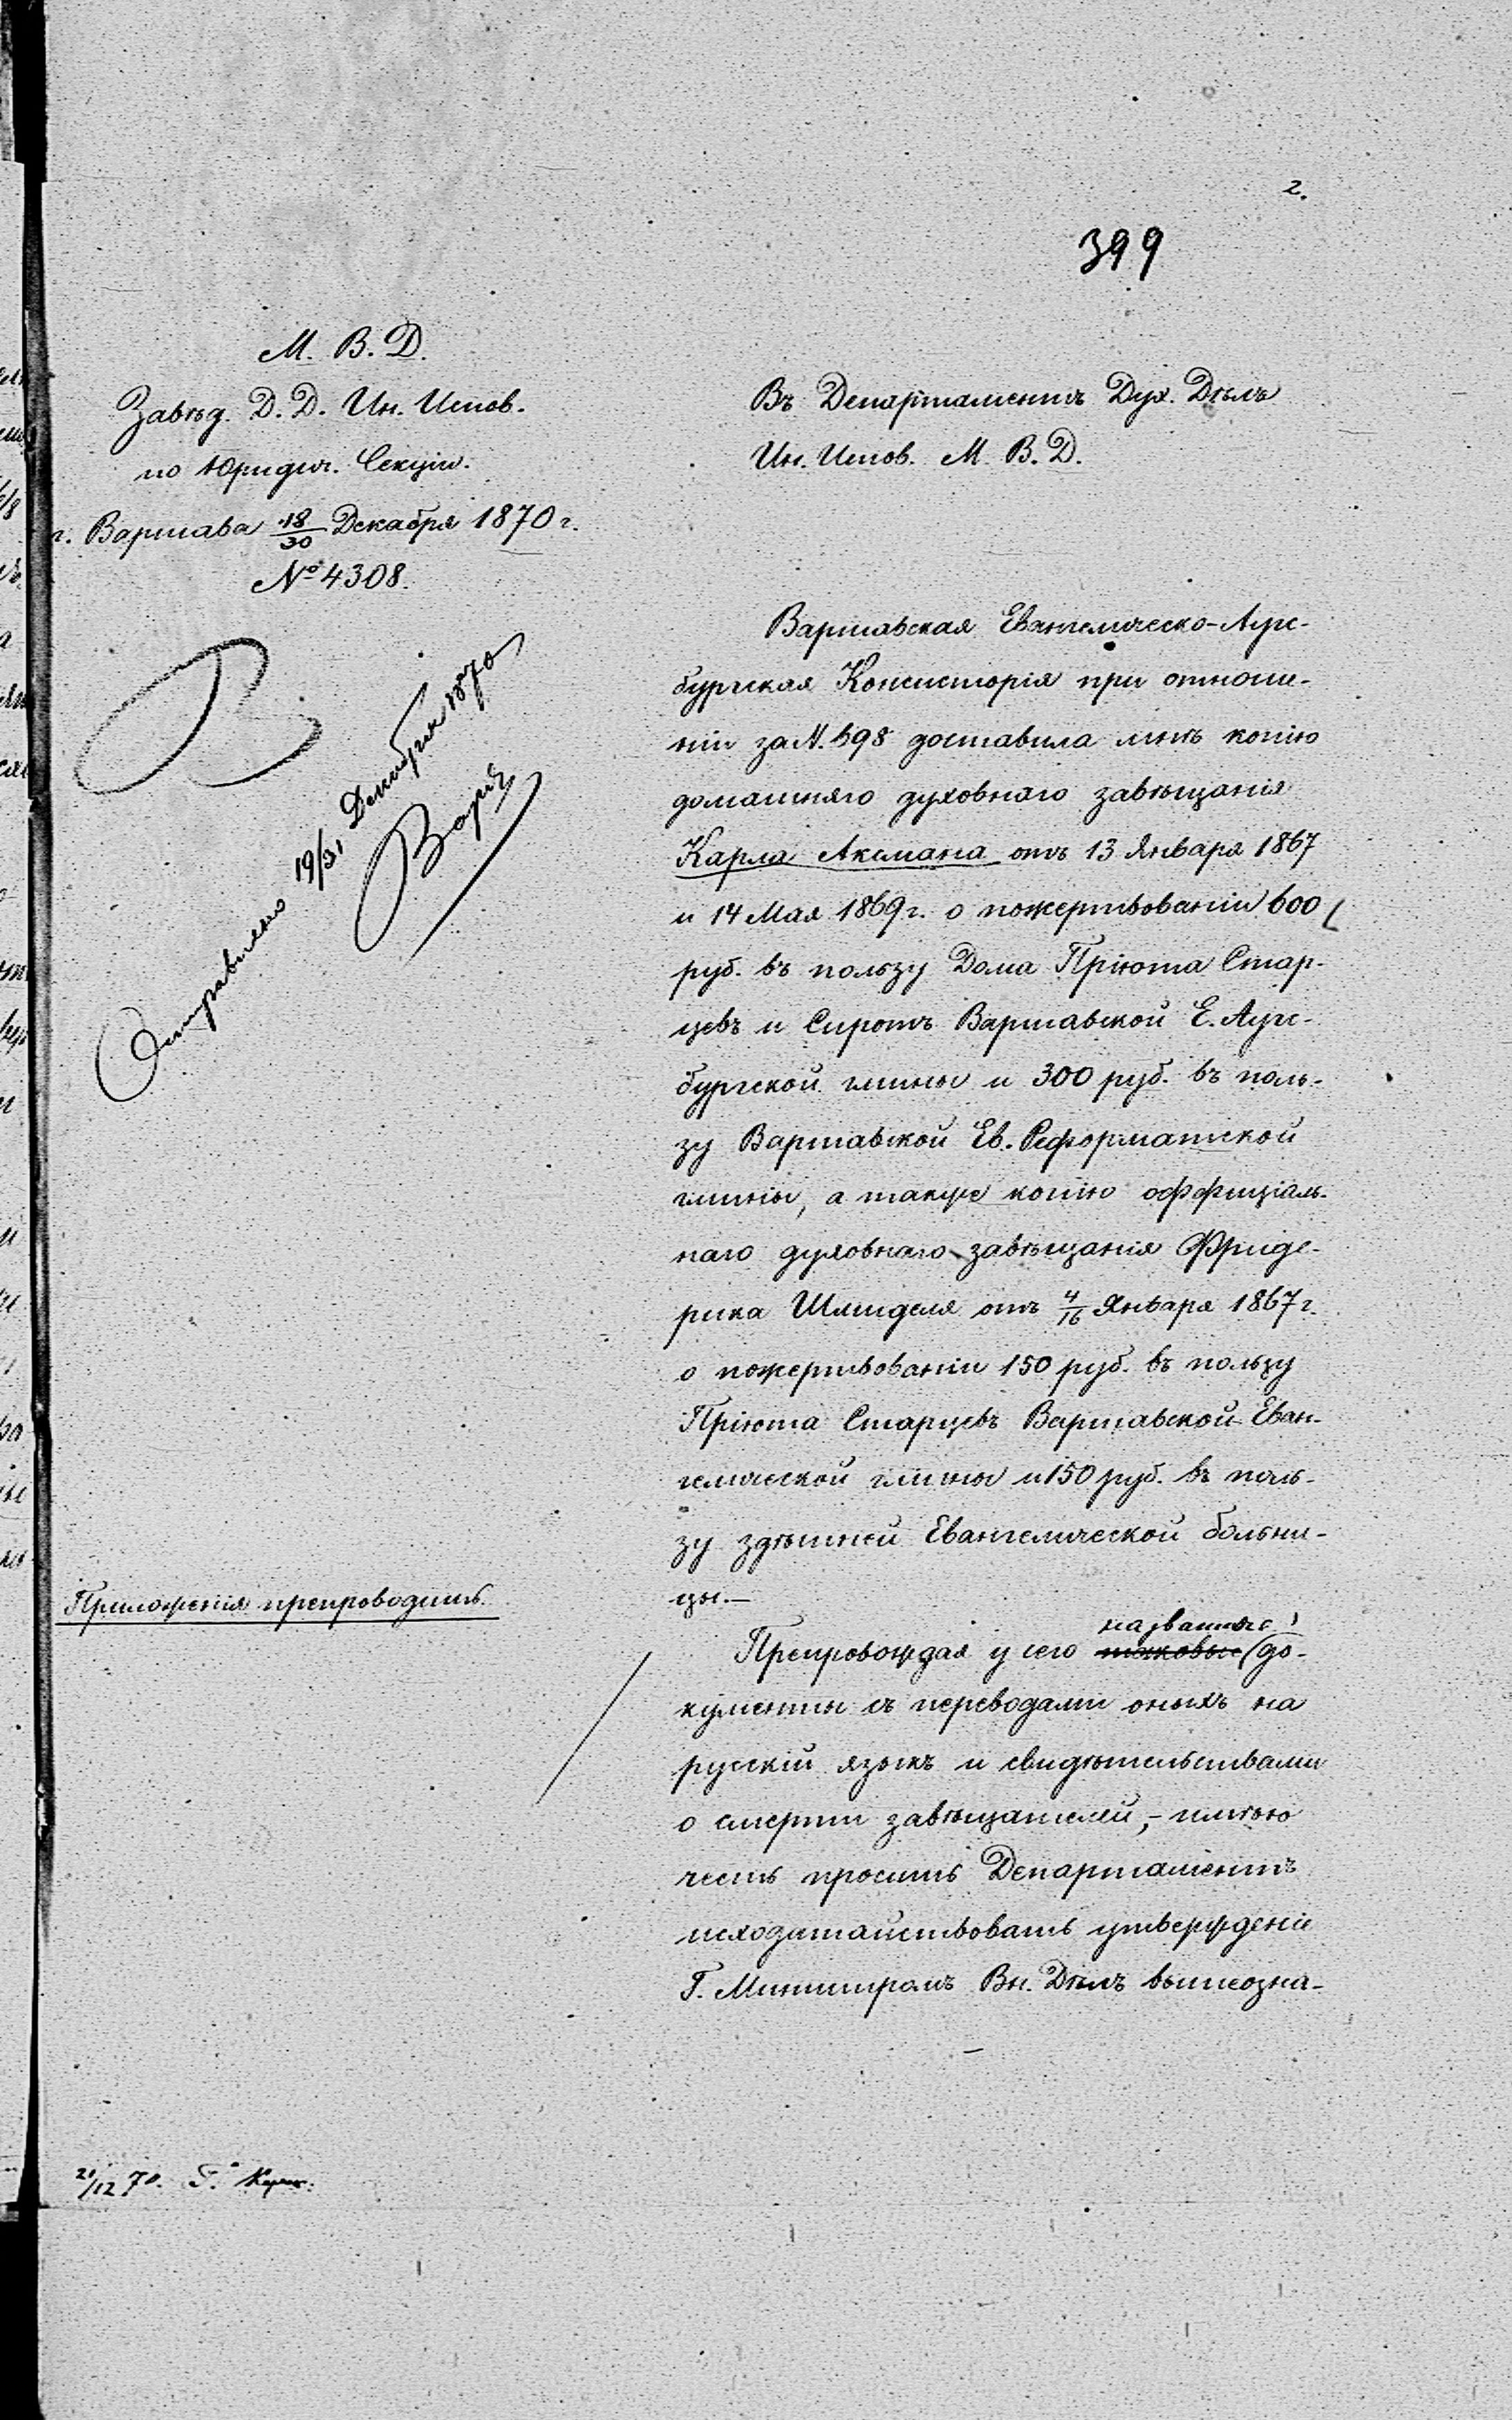 2.
399
М. В. Д.
Завѣд. Д. Д. Ин. Испов.
по Юридич. Секціи.
г. Варшава 18/30 Декабря 1870 г.
№ 4308.
Отправлено 19/31 Декабря 1870
Въ Департаментъ Дух. Дѣлъ
Ин. Испов. М. В. Д.
Варшавская Евангелическо-Аугс-
бургская Консисторія при отноше-
ніи за N. 698 доставила мнѣ копію
домашняго духовнаго завѣщанія
Карла Аксмана отъ 13 Января 1867
и 14 Мая 1869 г. о пожертвованіи 600
руб. въ пользу Дома Пріюта Стар-
цевъ и Сиротъ Варшавской Е. Аугс-
бургской гмины и 300 руб. въ поль-
зу Варшавской Ев. Реформатской
гмины, а также копію оффиціаль-
наго духовнаго завѣщанія Фриде-
рика Шмиделя отъ 4/16 Января 1867 г.
о пожертвованіи 150 руб. въ пользу
Пріюта Старцевъ Варшавской Еван-
гелической гмины и 150 руб. въ поль-
зу здѣшней Евангелической больни-
цы.—
Приложенія препроводить.
названные
Препровождая у сего таковые до-
кументы съ переводами оныхъ на
русскій языкъ и свидѣтельствами
о смерти завѣщателей,- имѣю
честь просить Департаментъ
исходатайствовать утвержденіе
Г. Министромъ Вн. Дѣлъ вышеозна-
21/12 70. Г.